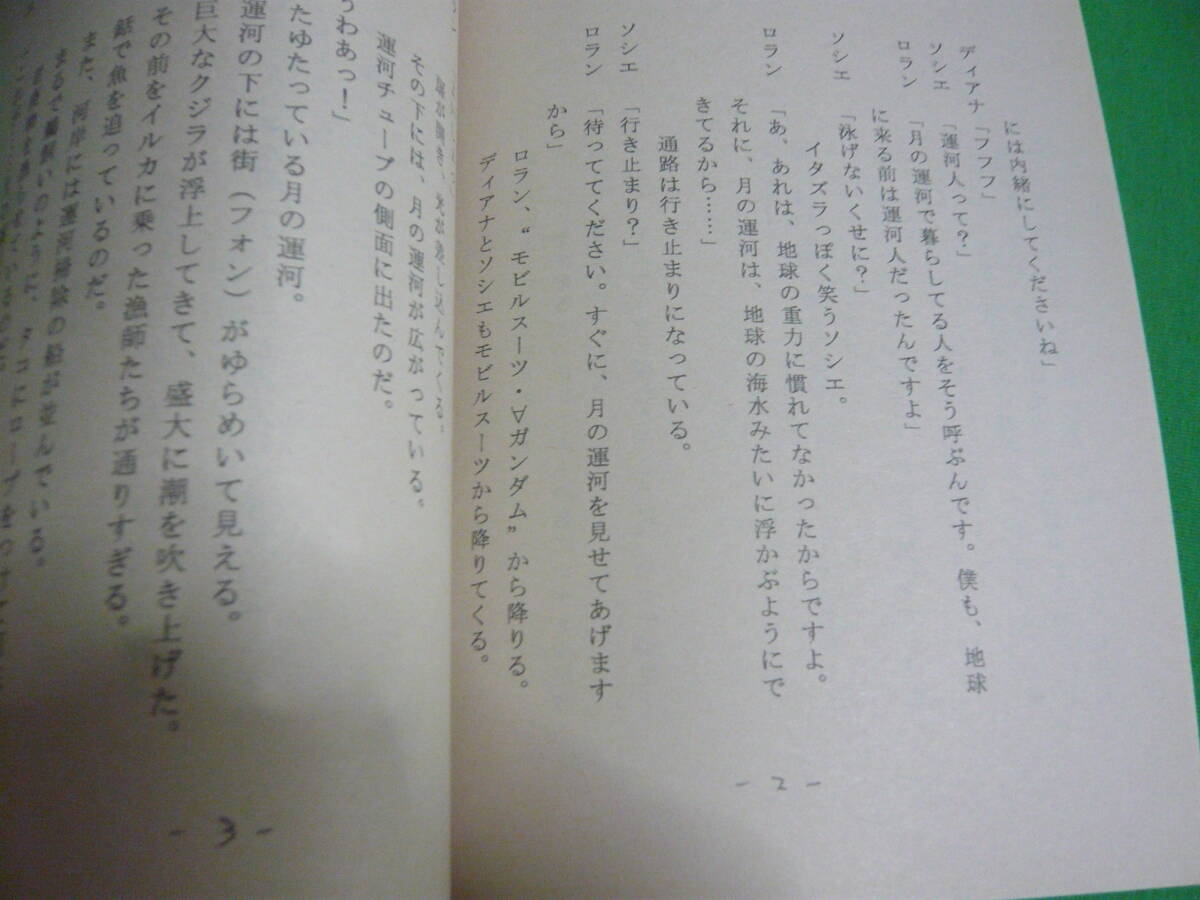 には内緒にしてくださいね」
ディアナ「フフフ」
ソシエ「運河人って？」
ロラン「月の運河で暮らしてる人をそう呼ぶんです。僕も、地球
に来る前は運河人だったんですよ」
ソシエ「泳げないくせに？」
イタズラっぽく笑うソシエ。
ロラン「あ、あれは、地球の重力に慣れてなかったからですよ。
それに、月の運河は、地球の海水みたいに浮かぶようにで
きてるから……」
通路は行き止まりになっている。
ソシエ「行き止まり？」
ロラン「待っててください。すぐに、月の運河を見せてあげます
から」
ロラン、“モビルスーツ・∀ガンダム”から降りる。
ディアナとソシエもモビルスーツから降りてくる。
- 2 -
差し込んでくる。
その下には、月の運河が広がっている。
運河チューブの側面に出たのだ。
うわあっ！」
たゆたっている月の運河。
運河の下には街（フォン）がゆらめいて見える。
巨大なクジラが浮上してきて、盛大に潮を吹き上げた。
その前をイルカに乗った漁師たちが通りすぎる。
話で魚を追っているのだ。
また、河岸には運河掃除の船が並んでいる。
まるで鵜飼いのように、タコにロープをつけ
- 3 -